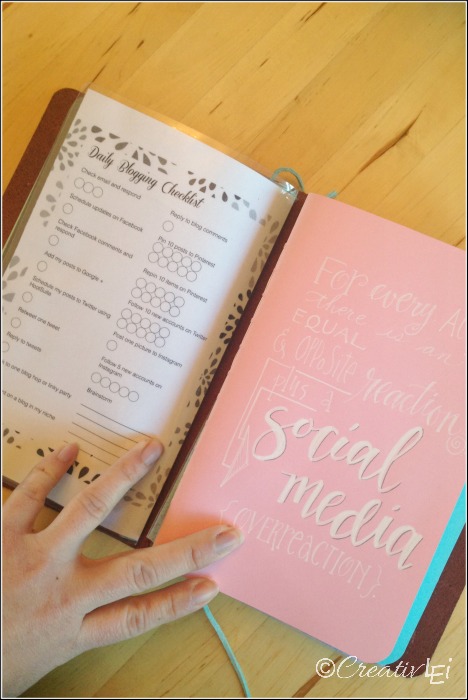 Daily Blogging Checklist
Check email and respond
Schedule updates on Facebook
Check Facebook comments and
respond
Add my posts to Google +
Schedule my posts to Twitter using
HootSuite
Retweet one tweet
Reply to tweets
to one blog hop or linky party
on a blog in my niche
Reply to blog comments
Pin 10 posts to Pinterest
Repin 10 items on Pinterest
Follow 10 new accounts on Twitter
Post one picture to Instagram
Follow 5 new accounts on
Instagram
Brainstorm
For every
there is an
EQUAL
& OPPOSITE reaction
plus a
social
media
{OVERREACTION}.
©CreativLEi